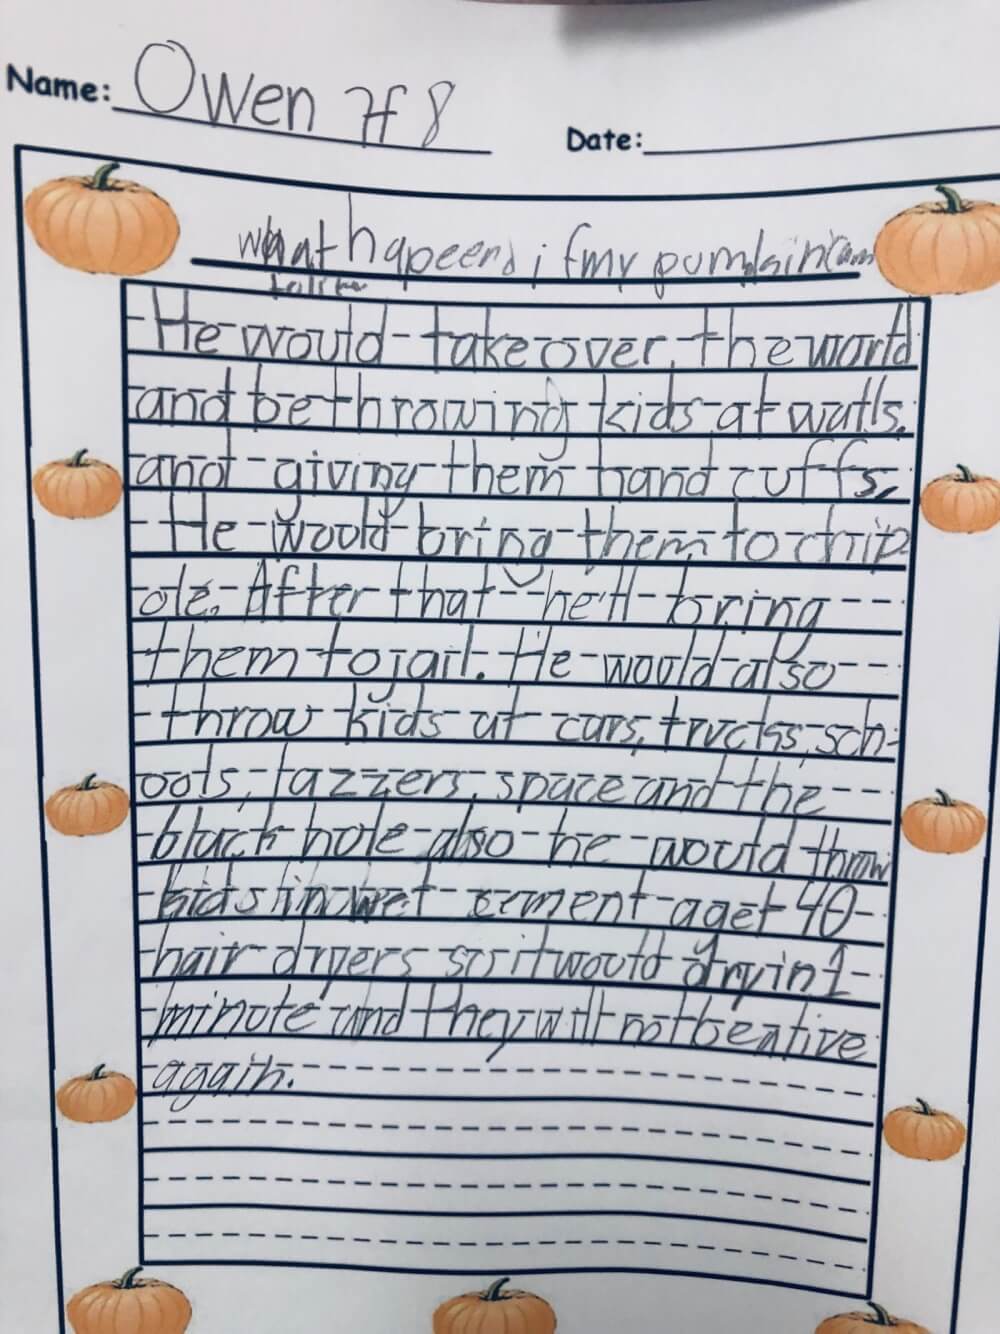 Name: Owen #8
Date:
what hapeend if my pumpkin cam
He would take over the world
and be throwing kids at walls.
and giving them hand cuffs,
He would bring them to chip
ole. After that he'll bring
them to jail. He would also
throw kids at cars, trucks, sch-
ools, tazzers, space and the
black hole also he would throw
kids in wet cement a get 40
hair dryers so it would dry in 1
minute and they will not be alive
again.